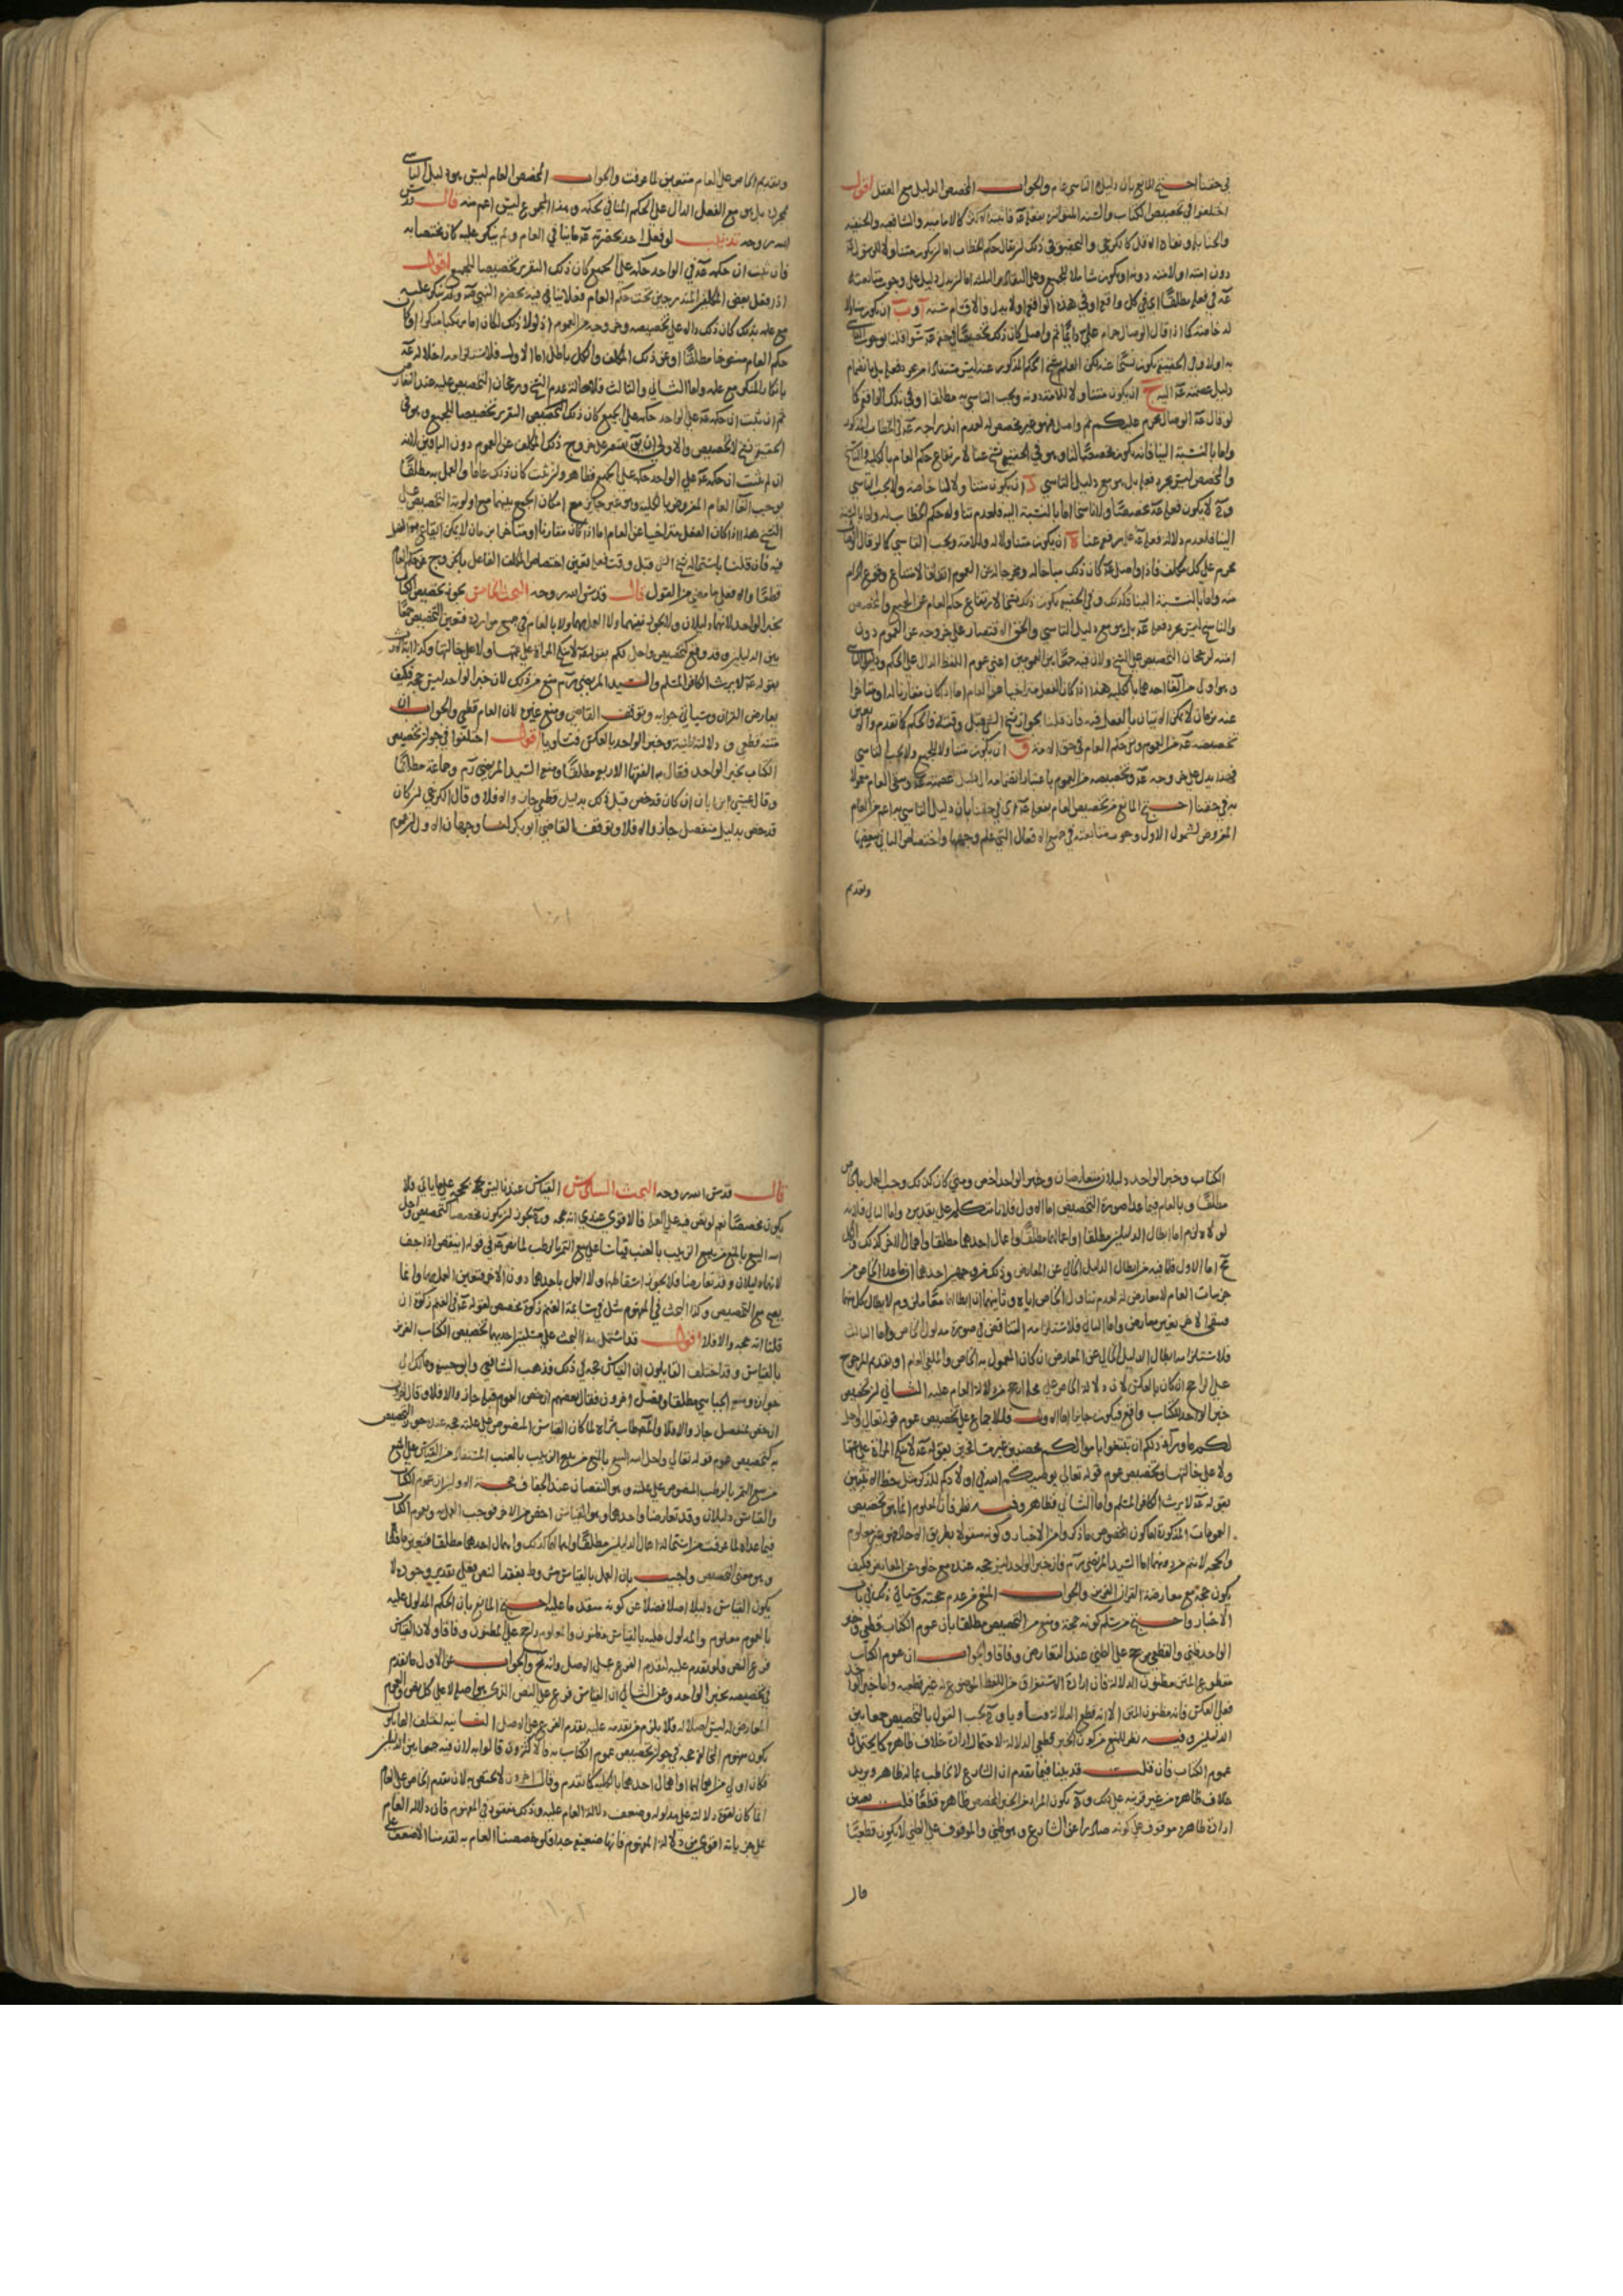 في حقنا احتج المانع بان دليل التاسي عام والجواب المخصص الدليل مع الفعل اقول
اختلفوا في تخصيص الكتاب والسنة المتواترة بفعله عَم فاثبته الاكثر كالامامية والشافعية والحنفية
والحنابلة ونفاه الاقل كالكرخي والتحقيق في ذلك ان يقال حكم الخطاب اما ان يكون متناولا للرسول
دون امته او لامته دونه او يكون شاملا للجميع وعلى التقادير الثلثة اما ان يدل دليل على وجوب متابعته
عَم في فعله مطلقا اي في كل واقع او في هذه الواقع او لا يدل فالاقسام ستة آ و ب ان يكون متناولا
له خاصة كما اذا قال الوصال حرام علي دايما ثم واصل كان ذلك تخصيصا في حقه عَم سوا قلنا بوجوب التاسي
به او لا وفي الحقيقة يكون نسخا عنه لكن العلم بنسخ الحكم المذكور عنه ليس مستفادا من مجرد فعله بل بانضمام
دليل عصمته عَم اليه ج ان يكون متناولا للامة دونه ويجب التاسي به مطلقا او في تلك الواقع كما
لو قال عَم الوصال محرم عليكم ثم واصل فهو غير مخصص له لعدم اندراجه عَم في الخطاب المذكور
واما بالنسبة الينا فانه يكون مخصصا لنا وهو في الحقيقة نسخ عنا لارتفاع حكم العام بالكلية والناسخ
والمخصص ليس مجرد فعله بل هو مع دليل التاسي د ان يكون متناولا لنا خاصة ولا يجب التاسي
وح لا يكون فعله عَم مخصصا ولا ناسخا اما بالنسبة اليه فلعدم تناوله حكم الخطاب له واما بالنسبة
الينا فلعدم دلالة فعله عَم على رفع عنا ه ان يكون متناولا له وللامة ويجب التاسي كما لو قال الوصال
محرم على كل مكلف فاذا واصل عَم كان ذلك مباحا له ومخرجا له عن العموم اتفاقا لامتناع وقوع الحرام
منه واما بالنسبة الينا فكذلك وفي الحقيقة يكون ذلك نسخا لارتفاع حكم العام عن الجميع والمخصص
والناسخ ليس مجرد فعله عَم بل هو مع دليل التاسي والحق الاقتصار على خروجه عن العموم دون
امته لرجحان التخصيص على النسخ ولان فيه جمعا بين العمومين اعني عموم اللفظ الدال على الحكم ودليل التاسي
وهو اولى من الغا احدهما بالكلية هذا اذا كان الفعل متراخيا عن العام اما اذا كان مقارنا له او متاخرا
عنه بزمان لا يمكن الاتيان بالفعل فيه فان قلنا بجواز نسخ الشي قبل وقته فالحكم كما تقدم والا تعين
تخصيصه عَم من العموم وبقي حكم العام في حق الامة و ان يكون متناولا للجميع ولا يجب التاسي
فهذا يدل على خروجه عَم وتخصيصه من العموم باعتبار انضمامه الى دليل عصمته عَم وبقي العام معمولا
به في حقنا احتج المانع من تخصيص العام بفعله عَم اي في حقنا بان دليل التاسي به اعم من العام
المفروض لشمول الاول وجوب متابعته في جميع الافعال التي علم وجهها واختصاص الثاني ببعضها
وتقديم
وتقديم الخاص على العام متعين لما عرفت والجواب المخصص العام ليس هو دليل التاسي
بمجرده بل هو مع الفعل الدال على الحكم المنافي لحكمه وهذا المجموع ليس اعم منه قال قدس
الله روحه تذنيب لو فعل احد بحضرته عَم ما ينافي العام ولم ينكر عليه كان مختصا به
فان ثبت ان حكمه عَم في الواحد حكمه على الجميع كان ذلك التقرير تخصيصا للجميع اقول
اذا فعل بعض المكلفين المندرجين تحت حكم العام فعلا ينافي فيه بحضرة النبي عَم ولم ينكر عليه
مع علمه بذلك كان ذلك دالا على تخصيصه وخروجه من العموم اذ لولا ذلك لكان اما مرتكبا منكرا او كان
حكم العام منسوخا مطلقا او عن ذلك المكلف والكل باطل اما الاول فلاستلزامه اخلاله عَم
بانكار المنكر مع علمه واما الثاني والثالث فلاصالة عدم النسخ ورجحان التخصيص عليه عند التعارض
ثم ان ثبت ان حكمه عَم على الواحد حكمه على الجميع كان ذلك التقرير تخصيصا للجميع وهو في
الحقيقة نسخ لا تخصيص والاولى ان يق يقتصر على خروج ذلك المكلف عن العموم دون الباقين لانه
ان لم يثبت ان حكمه عَم على الواحد حكمه على الجميع فظاهر وان ثبت كان ذلك عاما والعمل به مطلقا
يوجب الغا العام المفروض بالكلية وهو غير جايز مع امكان الجمع بينهما مع اولوية التخصيص على
النسخ هذا اذا كان الفعل متراخيا عن العام اما اذا كان مقارنا او متاخرا بزمان لا يمكن ايقاع الفعل
فيه فان قلنا باستحالة نسخ الشي قبل وقت فعله تعين اختصاص المكلف الفاعل بالخروج عن حكم العام
قطعا والا فعلى ما مضى من القول قال قدس الله روحه البحث الخامس يجوز تخصيص الكتاب
بخبر الواحد لانهما دليلان ولا يجوز نفيهما ولا العمل بهما ولا بالعام في جميع موارده فتعين التخصيص جمعا
بين الدليلين وقد وقع لتخصيص واحل لكم بقوله عَم لا تنكح المراة على عمتها ولا على خالتها وكذا اية الارث
بقوله عَم لا يرث الكافر المسلم والسيد المرتضى رَه منع من ذلك لان خبر الواحد ليس حجة فكيف
يعارض القران وسياتي جوابه وتوقف القاضي ومنع غيره لان العام قطعي والجواب ان
متنه قطعي ودلالته ظنية وخبر الواحد بالعكس فتساويا اقول اختلفوا في جواز تخصيص
الكتاب بخبر الواحد فقال به الفقها الاربعة مطلقا ومنع السيد المرتضى رَه وجماعة مطلقا
وقال عيسى بن ابان ان كان قد خص قبل ذلك بدليل قطعي جاز والا فلا وقال الكرخي ان كان
قد خص بدليل منفصل جاز والا فلا وتوقف القاضي ابو بكر لنا وجهان الاول ان عموم
الكتاب وخبر الواحد دليلان متعارضان وخبر الواحد اخص ومتى كان كذلك وجب العمل بالخاص
مطلقا وبالعام فيما عدا صورة التخصيص اما الاول فلانا نتكلم على تقديره واما الثاني فلانه
لولاه لزم اما ابطال الدليلين مطلقا او اعمالهما مطلقا واعمال احدهما مطلقا واهمال الاخر كذلك والكل
مح اما الاول فلما فيه من ابطال الدليل الخالي عن المعارض وذلك من وجهين احدهما ان ما عدا الخاص من
جزييات العام لا معارض له لعدم تناول الخاص اياه وثانيهما ان ابطالهما معا ملزوم لابطال كل منهما
فيبقى الاخر بغير معارض واما الثاني فلاستلزامه التناقض في صورة مدلول الخاص واما الثالث
فلاستلزامه ابطال الدليل الخالي عن المعارض ان كان المعمول به الخاص والملغى العام او تقديم المرجوح
على الراجح ان كان بالعكس لان دلالة الخاص على محله ارجح من دلالة العام عليه الثاني ان تخصيص
خبر الواحد للكتاب واقع فيكون جايزا اما الاول فللاجماع على تخصيص عموم قوله تعالى واحل
لكم ما ورآء ذلكم ان تبتغوا باموالكم محصنين غير مسافحين بقوله عَم لا تنكح المراة على عمتها
ولا على خالتها وتخصيص عموم قوله تعالى يوصيكم الله في اولادكم للذكر مثل حظ الانثيين
بقوله عَم لا يرث الكافر المسلم واما الثاني فظاهر وفيه نظر فان المعلوم انما هو تخصيص
العمومات المذكورة اما كون المخصص ما ذكر واما من الاخبار وكونه منقولا بطريق الاحاد فغير معلوم
والحجة لا تتم من دونهما اما السيد المرتضى رَه فان خبر الواحد ليس حجة عنده مع خلوه عن المعارض فكيف
يكون حجة مع معارضة القران العزيز والجواب المنع من عدم حجيته وسياتي ذلك في باب
الاخبار واحتج من سلم كونه حجة ومنع من التخصيص مطلقا بان عموم الكتاب قطعي وخبر
الواحد ظني والقطعي مرجح على الظني عند التعارض وفاقا والجواب ان عموم الكتاب
مقطوع المتن مظنون الدلالة فان ارادة الاستغراق من اللفظ الموضوع له غير قطعية واما خبر الواحد
فعلى العكس فانه مظنون المتن الا انه قطعي الدلالة فتساويا وح يجب القول بالتخصيص جمعا بين
الدليلين وفيه نظر للمنع من كون الخبر قطعي الدلالة لاحتمال ارادة خلاف ظاهره كما يحتمل في
عموم الكتاب فان قلت قد بينا فيما تقدم ان الشارع لا يخاطب بما له ظاهر ويريد
خلاف ظاهره من غير قرينة على ذلك وح يكون المراد من الخبر المخصص ظاهره قطعا قلت تعين
ارادة ظاهره موقوف على كونه صادرا عن الشارع وهو ظني والموقوف على الظني لا يكون قطعيا
قال
قال قدس الله روحه البحث السادس القياس عندنا ليس حجة على ما ياتي فلا
يكون مخصصا نعم لو نص فيه على العلة فالاقوى عندي انه حجة وح يجوز ان يكون مخصصا لتخصيص واحل
الله البيع بالمنع من بيع الزبيب بالعنب قياسا على بيع التمر بالرطب لما نص عَم في قوله اينقص اذا جف
لانهما دليلان وقد تعارضا فلا يجوز اسقاطهما ولا العمل باحدهما دون الاخر فتعين العمل بهما وانما
يصح مع التخصيص وكذا البحث في المفهوم مثل في سايمة الغنم زكوة مخصص لقوله عَم في الغنم زكوة ان
قلنا انه حجة والا فلا اقول قد اشتمل هذا البحث على مسئلتين احديهما تخصيص الكتاب العزيز
بالقياس وقد اختلف القايلون ان القياس حجة في ذلك فذهب الشافعي وابو حنيفة ومالك الى
جوازه ومنع الجبائي مطلقا وفصل اخرون فقال بعضهم ان خص العموم قبله جاز والا فلا وقال الكرخي
ان خص بمنفصل جاز والا فلا والمص طاب ثراه لما كان القياس المنصوص على علته حجة عنده جوز التخصيص
به كتخصيص عموم قوله تعالى واحل الله البيع بالمنع من بيع الزبيب بالعنب المستفاد من القياس على منع
من بيع التمر بالرطب المنصوص على علته وهو النقصان عند الجفاف حجة الاولين ان عموم الكتاب
والقياس دليلان وقد تعارضا واحدهما وهو القياس اخص من الاخر فوجب العمل به وبعموم الكتاب
فيما عداه لما عرفت من استحالة اعمال الدليلين مطلقا واهمالهما كذلك واهمال احدهما مطلقا فتعين ما قلنا
وهو معنى التخصيص واجيب بان العمل بالقياس مشروط بفقد النص فعلى تقدير وجوده لا
يكون القياس دليلا اصلا فضلا عن كونه مقدما عليه احتج المانع بان الحكم المدلول عليه
بالعموم معلوم والمدلول عليه بالقياس مظنون والمعلوم راجح على المظنون وفاقا ولان القياس
فرع النص فلو تقدم عليه لتقدم الفرع على الاصل وانه مح والجواب عن الاول ما تقدم
في تخصيصه بخبر الواحد وعن الثاني ان القياس فرع على النص الذي هو اصله لا على كل نص والعموم
المعارض له ليس اصلا له فلا يلزم من تقدمه عليه تقدم الفرع على الاصل الثانية اختلف القايلون
بكون مفهوم المخالفة حجة في جواز تخصيص عموم الكتاب به فالاكثرون قالوا به لان فيه جمعا بين الدليلين
فكان اولى من اهمالهما او اهمال احدهما بالكلية كما تقدم وقال اخرون لا يخصص به لان تقدم الخاص على العام
انما كان لقوة دلالته على مدلوله وضعف دلالة العام عليه وذلك مفقود في المفهوم فان دلالة العام
على جزياته اقوى من دلالة المفهوم فانها ضعيفة جدا فلو خصصنا العام به لقدمنا الاضعف على